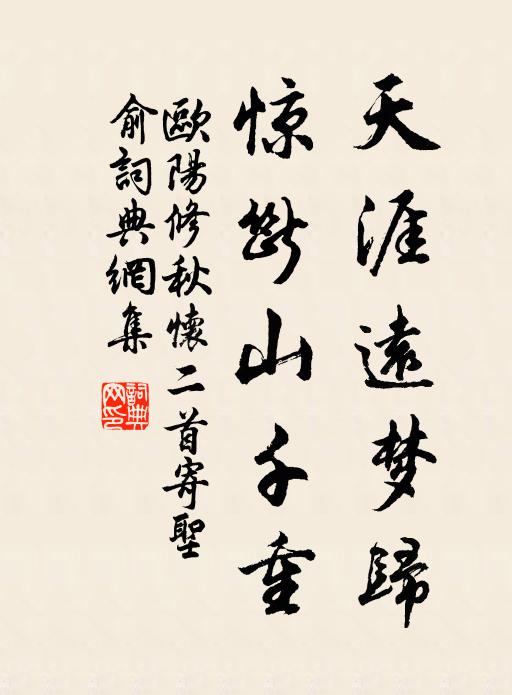 天涯遠梦歸
惊断山千重
歐陽修秋懷二首寄聖
俞詞典網集
詞典
网印